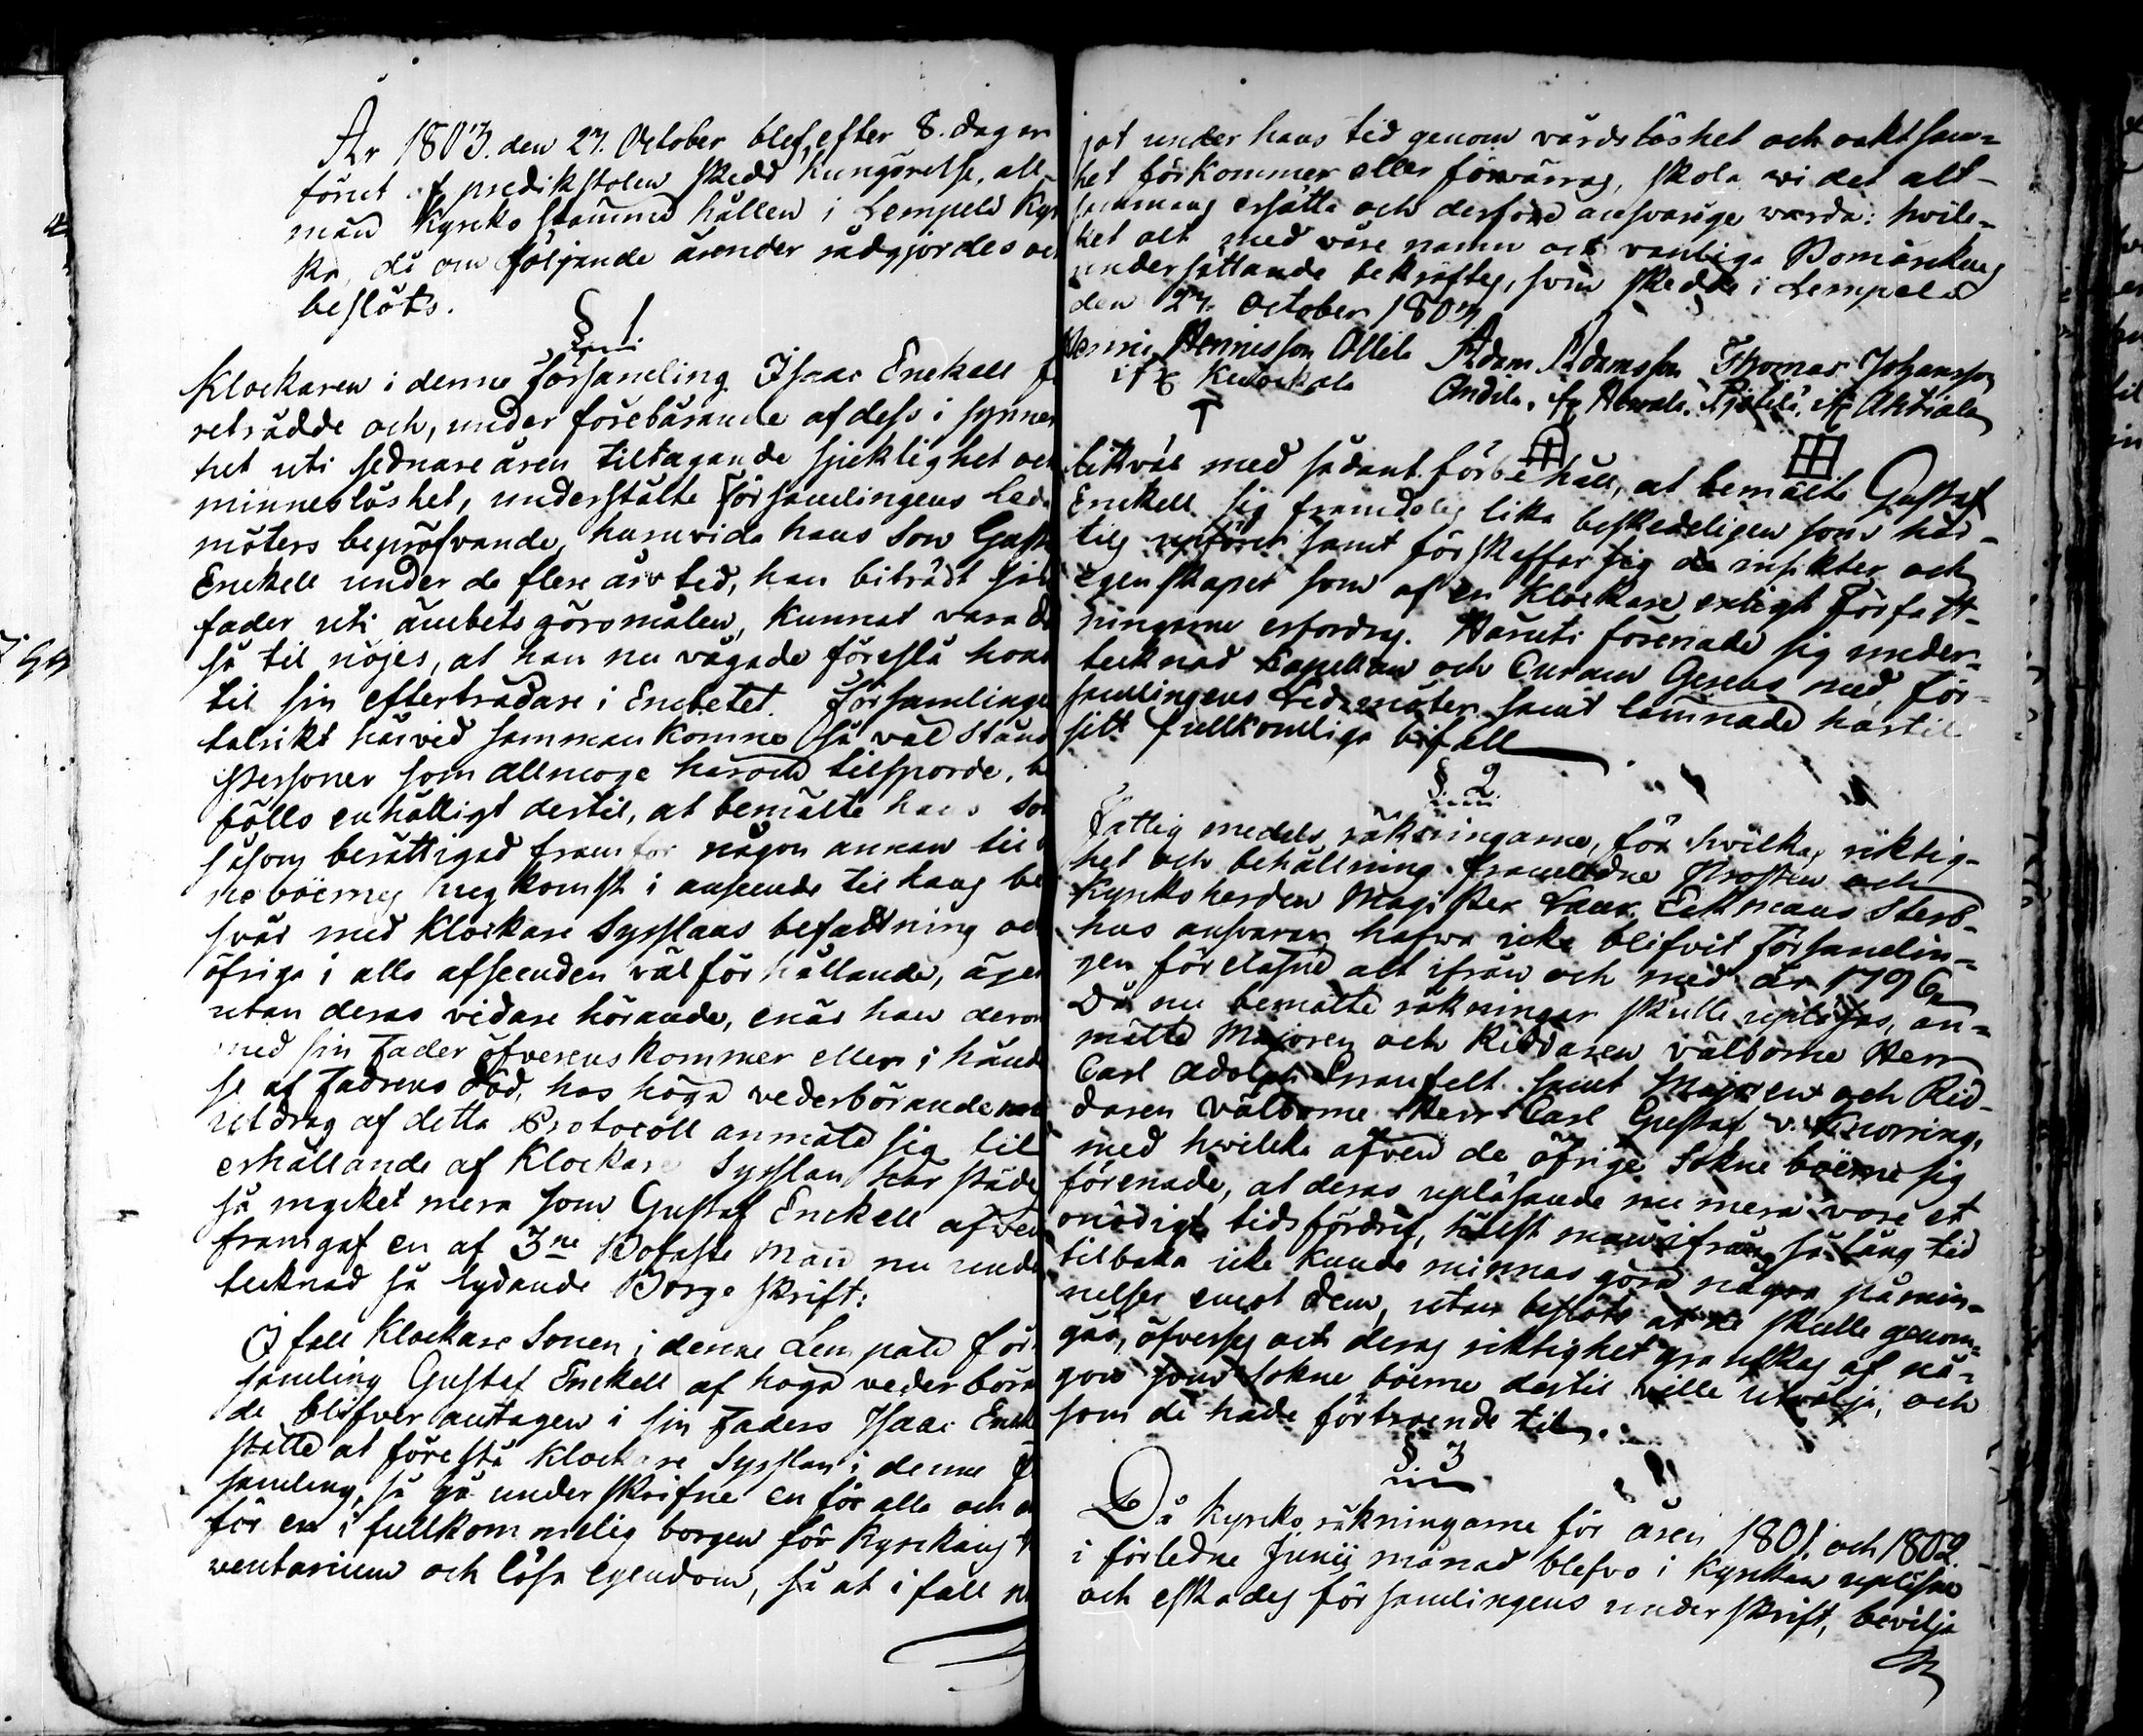 År 1803. den 27. October blef, efter 8. dagar
förut af predikstolen skedd kungörelse, all-
män Kyrko stämma hållen i Lempelä Kyr
ka, då om följande ärender rådgjordes och
beslöts.
§ 1
Klockaren i denne församling Isaac Enckell
reträdde och, under förebärande af dess i synner
het uti sednare åren tiltagande sjuklighet och
minneslöshet, understälte församlingens Led-
möters bepröfvande, huruvida hans Son Gust
Enckell under de flere års tid, han biträdt sin
fader uti ämbets göromålen, kunnat vara de
så til nöjes, at han nu vågade föreslå hono
til sin efterträdare i Embetet. Församlinge
talrikt härvid sammankomne så väl Stånds
Personer som allmoge härom tilsporde, bi
föllo enhälligt dertil, at bemälte hans Son
såsom berättigad framför någon annan til
ne boernes hugkomst i anseende til hans be
svär med Klockare Sysslans befattning och
öfriga i alla afseenden väl förhållande, äger
utan deras vidare hörande, enär han derom
med sin Fader öfverenskommer eller i händ
se af Fadrens död, hos höga vederbörande med
utdrag af detta Protocoll anmäla sig til
erhållande af Klockare Sysslan här städes
så mycket mera som Gustaf Enckell äfven
framgaf en af 3ne Bofaste Män nu under
tecknad så lydande Borgo skrift:
I fall Klockare Sonen i denne Lempälä för
samling Gustaf Enckell af höga vederböran
de blifver antagen i sin Faders Isaac Enck
ställe at förestå Klockare Sysslan i denne F
samling, så gå underskrifne en för alla och a
för en i fullkommelig borgen för Kyrckans In
ventarium och lösa egendom, så at i fall nå
got under hans tid genom vårdslöshet och oaktsam-
het förkommer eller förvärras, skola vi det alt-
sammans ersätta och derföre answarige warda: hvil-
ket alt med våre namn och vanliga Bomärckens
undersättande bekräftes, som skedde i Lempelä
den 27. October 1803
Henric Henricsson Ollila Adam Adamsson Thomas Johansson
ifr. Kulockala Andila, fr. Hewala. Pietilä, ifr. Aktiala
likväl med sådant förbehåll, at bemälte Gustaf
Enckell sig framdeles lika beskedeligen som här-
tils upförer samt förskaffar sig de insikter och
egenskaper som af en Klockare enligt Författ-
ningarne erfordras. Häruti förenade sig under-
tecknad Capellan och Curam Gerens med För-
samlingens Ledamöter samt lämnade härtil
sitt fullkomliga bifall
§ 2
Fattig medels räkningarne, för hvilkas riktig-
het och behållning framledne Prosten och
Kyrkoherden Magister Laur. Eekmans Sterb-
hus ansvarar, hafva icke blifvit Församlin-
gen förelästa alt ifrån och med år 1796.
Då nu bemälte räkningar skulle upläsas, an-
mälte Majoren och Riddaren välborne Herr
Carl Adolph Branfelt samt Majoren och Rid-
daren Välborne Herr Carl Gustaf v. Knorring,
med hvilcka äfven de öfrige Sokne boerne sig
förenade, at deras upläsande nu mera vore et
onödigt tidsfördrif, hälst man ifrån så lång tid
tilbaka icke kunde minnas göra några påmin-
nelser emot dem, utan beslöts at de skulle genom-
gås, öfverses och deras riktighet granskas af nå-
gon som Sokne boerne dertil ville utvälja, och
som de hade förtroende til.
§ 3
Då Kyrko räkningarne för åren 1801. och 1802.
i förledne Junij månad blefvo i Kyrckan upläsne
och eskades församlingens underskrift, bevilja